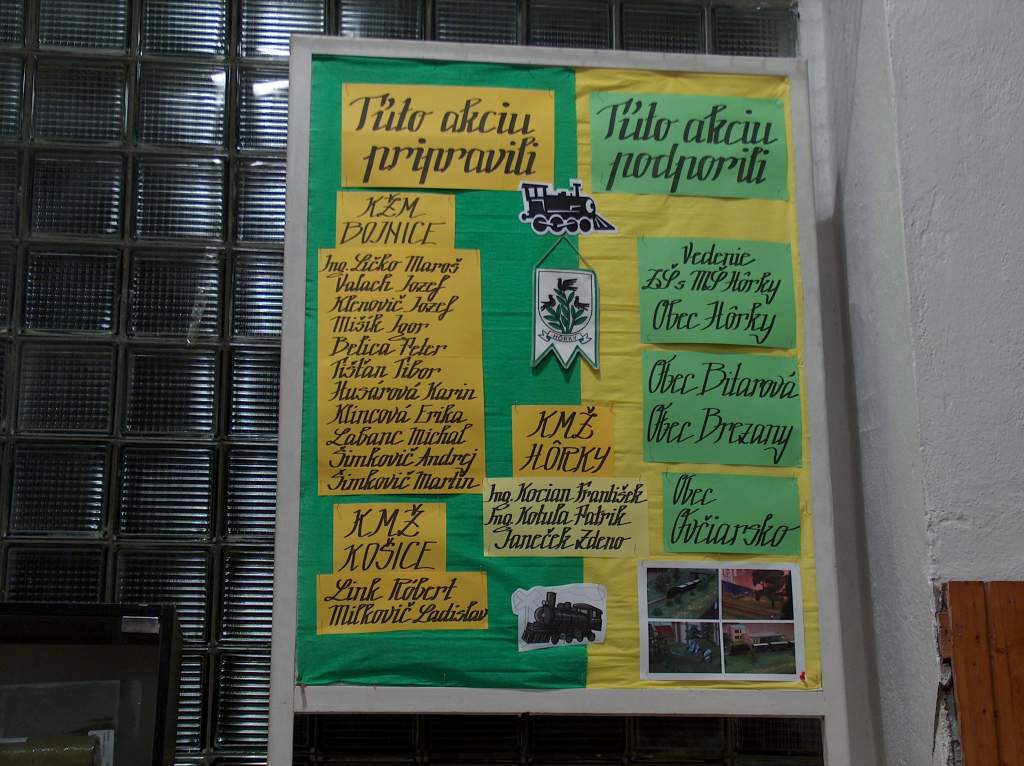 Túto akciu
pripravili
KŽM
BOJNICE
Ing. Ličko Maroš
Valach Jozef
Klenovič Jozef
Mišík Igor
Belica Peter
Tišťan Tibor
Husárová Karin
Klincová Erika
Labanc Michal
Šimkovič Andrej
Šimkovič Martin
KMŽ
KOŠICE
Link Róbert
Miľkovič Ladislav
HÔRKY
KMŽ
HÔRKY
Ing. Kocian František
Ing. Kotuľa Patrik
Janeček Zdeno
Túto akciu
podporili
Vedenie
ZŠ s MŠ Hôrky
Obec Hôrky
Obec Bitarová
Obec Brezany
Obec
Ovčiarsko